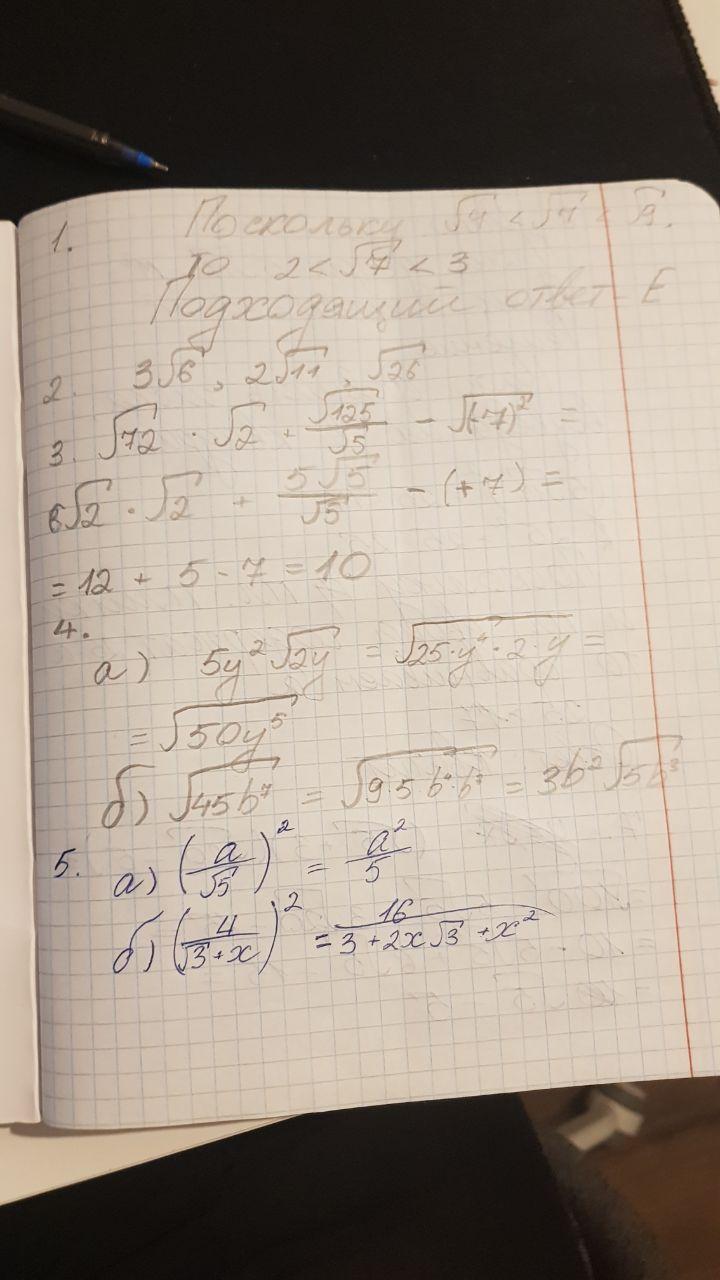 1. Поскольку √4 < √7 < √9.
то 2 < √7 < 3
Подходящий ответ - E
2. 3√6, 2√11, √26
3. √72 · √2 + √125/√5 - √(-7)² =
6√2 · √2 + 5√5/√5 - (+7) =
= 12 + 5 - 7 = 10
4.
а) 5y²√2y = √25·y⁴·2·y =
= √50y⁵
б) √45b⁷ = √9 5 b⁴·b³ = 3b²√5b³
5. а) (a/√5)² = a²/5
б) (4/√3+x)² = 16/3+2x√3+x²